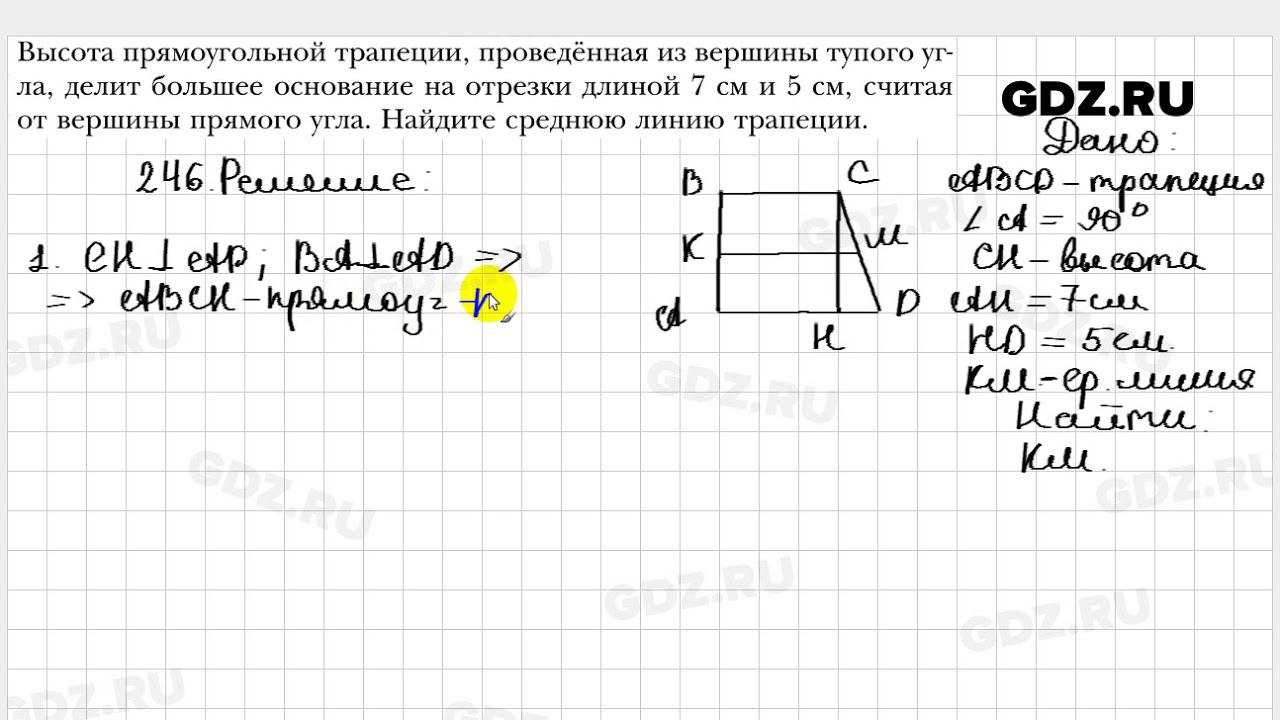 Высота прямоугольной трапеции, проведённая из вершины тупого уг-
ла, делит большее основание на отрезки длиной 7 см и 5 см, считая
от вершины прямого угла. Найдите среднюю линию трапеции.
GDZ.RU
Дано:
ABCD – трапеция
∠A = 90°
CH – высота
AH = 7 см
HD = 5 см.
KM – ср. линия
Найти:
KM.
246. Решение:
1. CH⊥AD; BA⊥AD =>
=> ABCH – прямоуг-
B
C
K
M
A
H
D
GDZ.RU
GDZ.RU
GDZ.RU
GDZ.RU
GDZ.RU
GDZ.RU
GDZ.RU
GDZ.RU
GDZ.RU
GDZ.RU
GDZ.RU